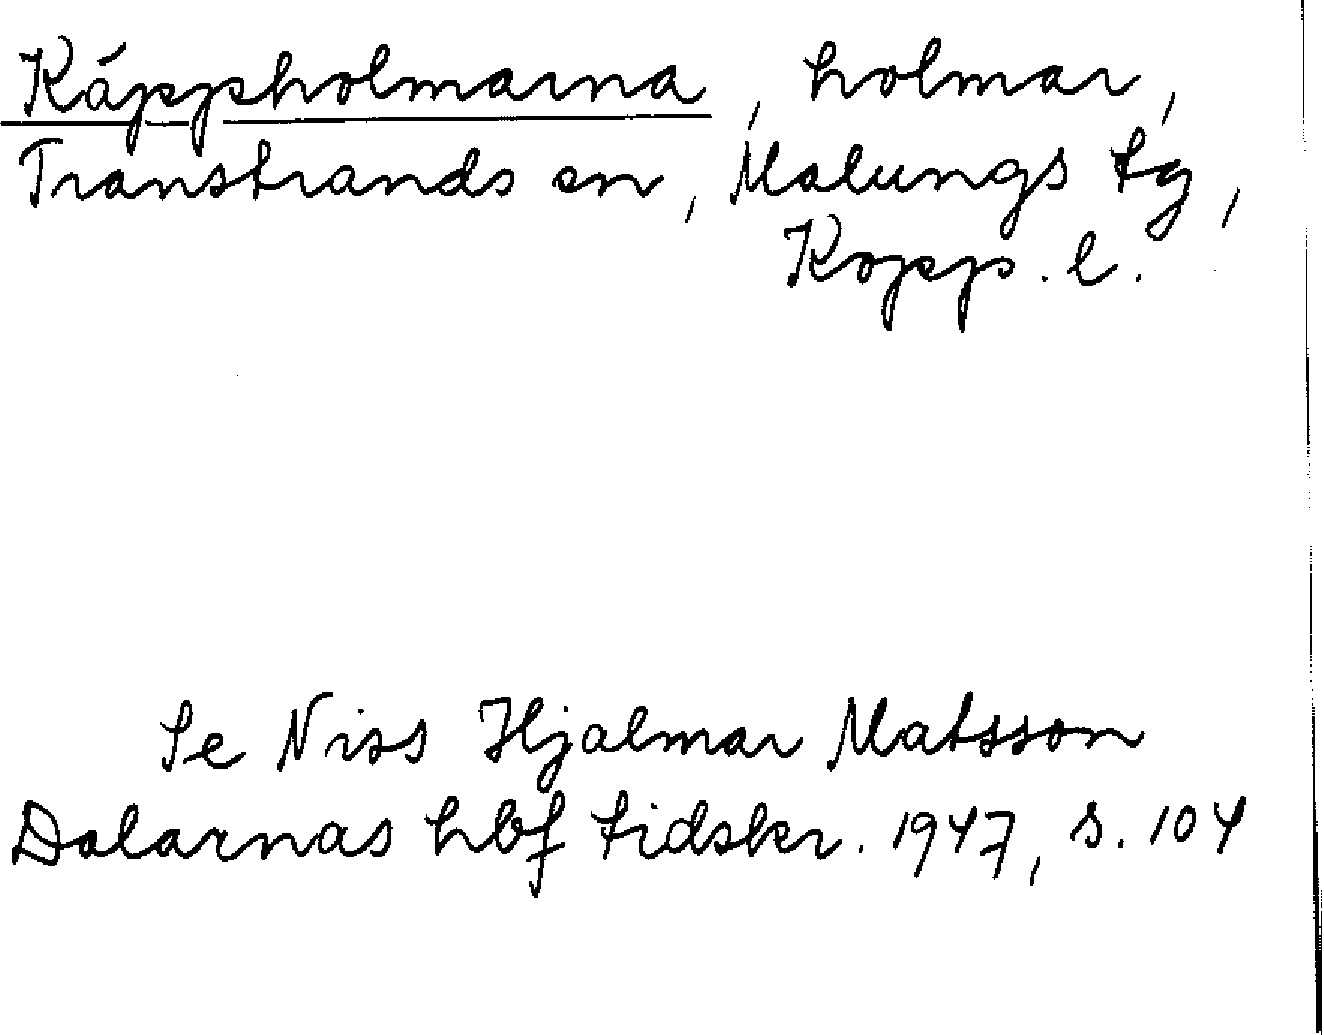 Käppsholmarna, holmar,
Transtrands sn, Malungs tg,
Kopp. l.
Se Niss Hjalmar Matsson
Dalarnas hbf tidskr. 1947, s. 104